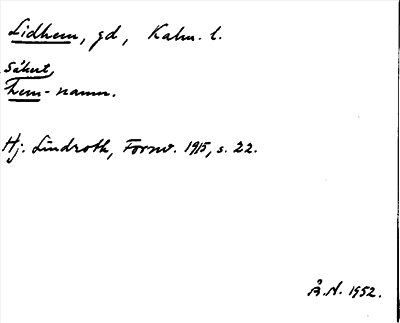 Lidhem, gd, Kalm. l.
Säkert
hem-namn.
Hj. Lindroth, Fornv. 1915, s. 22.
Å.N. 1952.